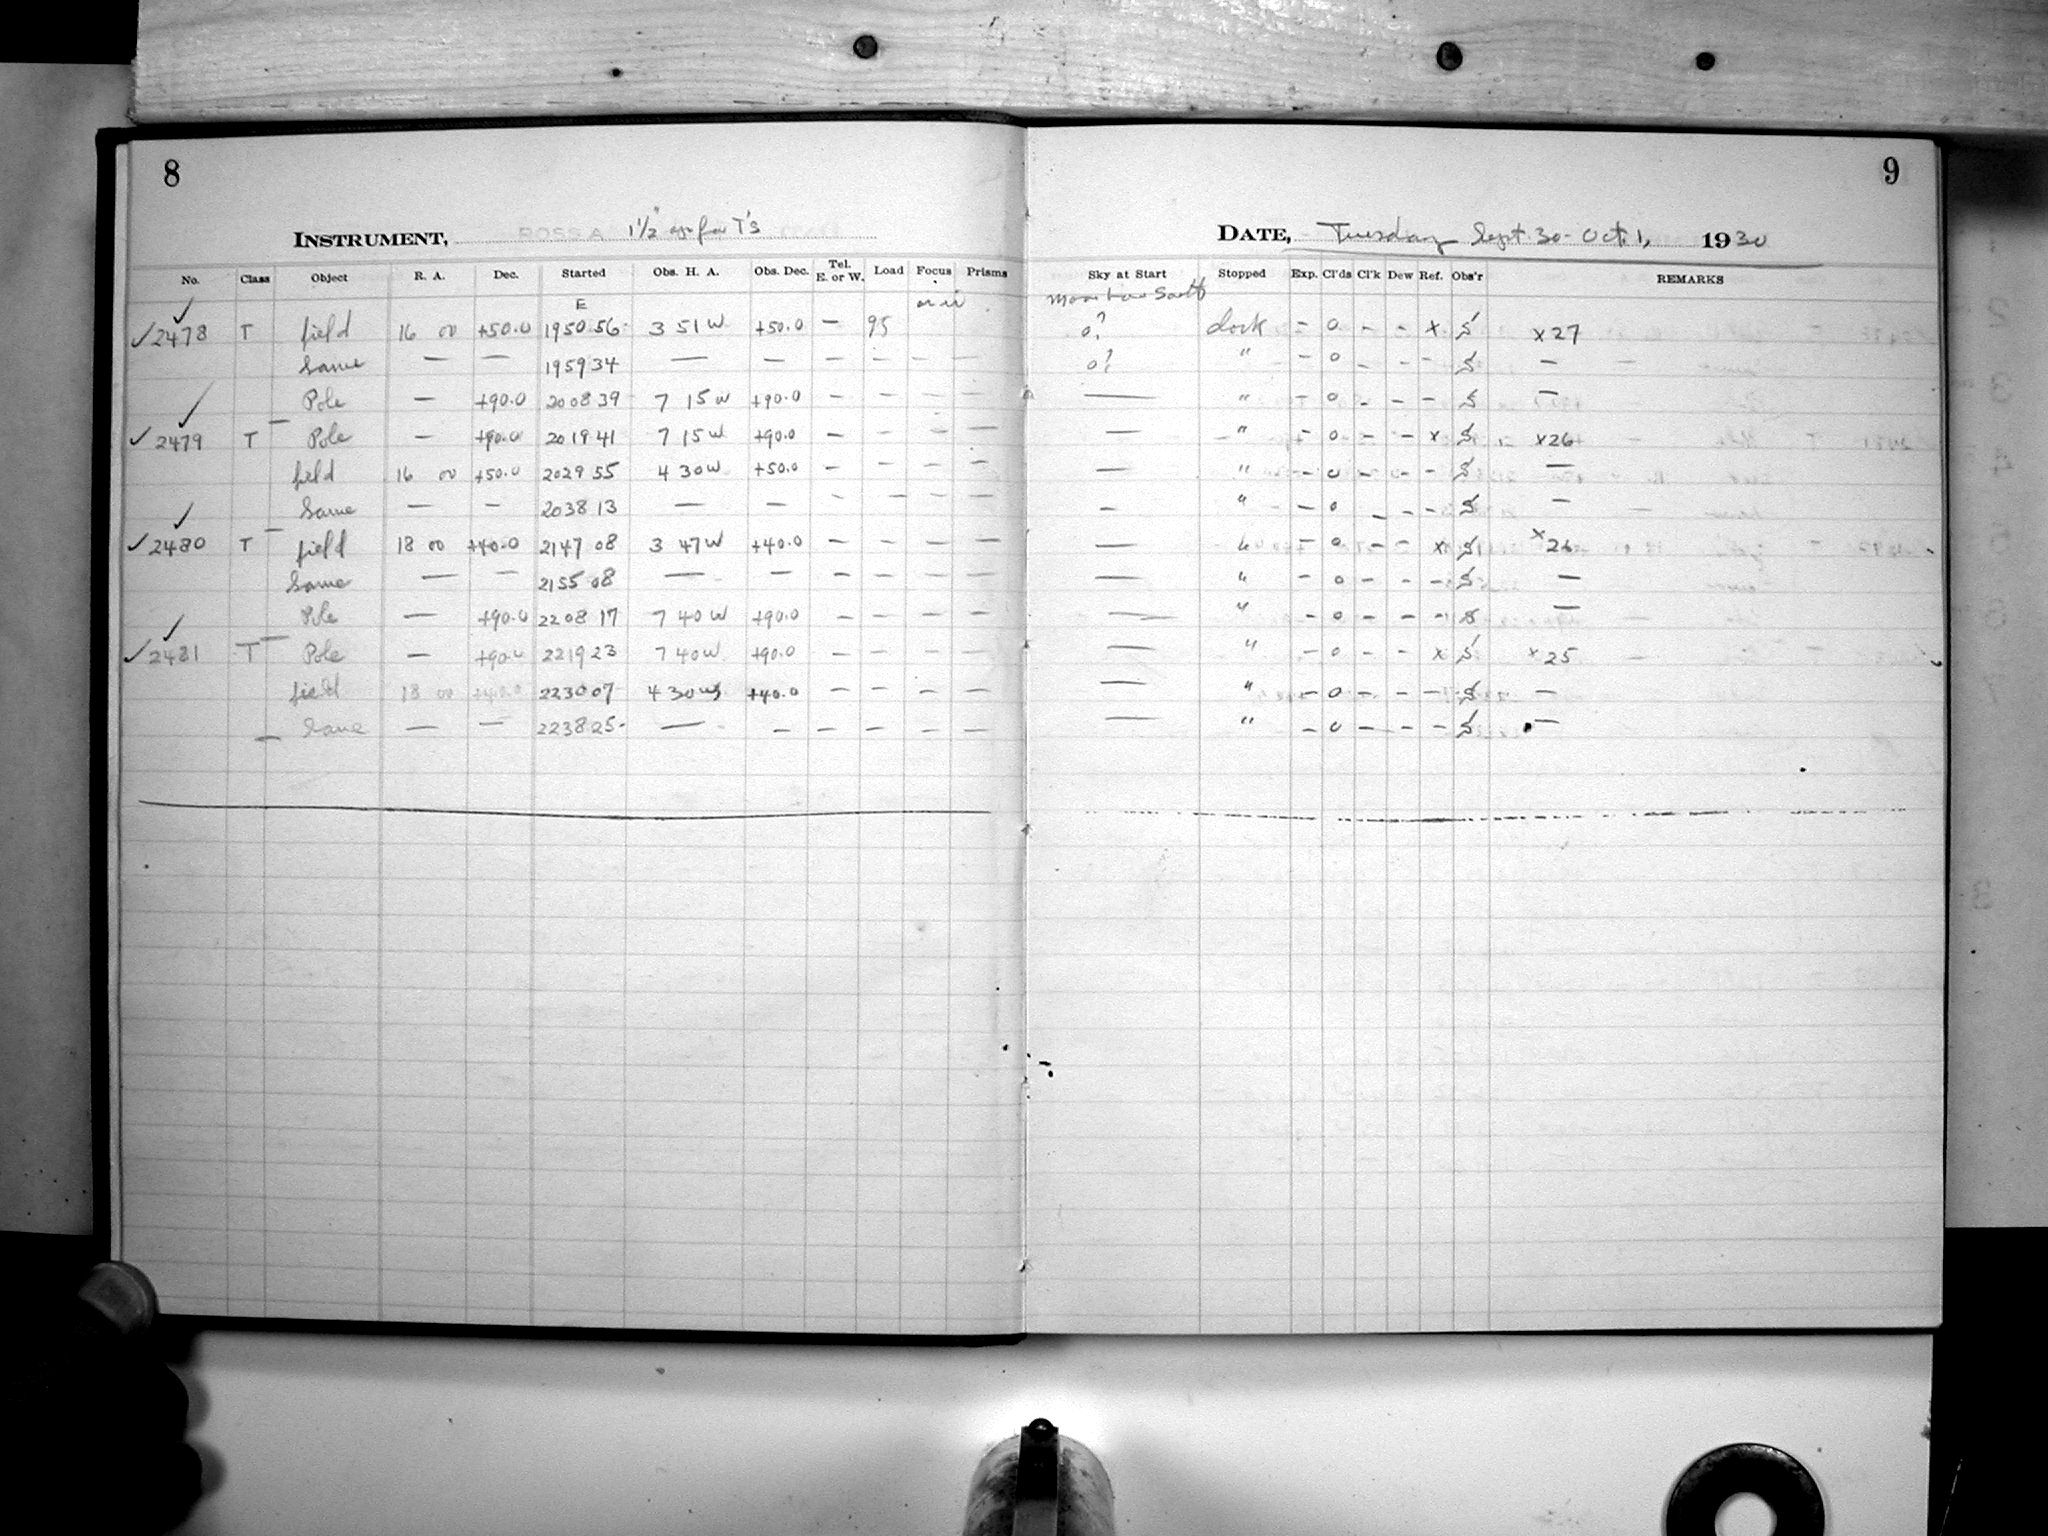 8
9
INSTRUMENT, ROSS A 1½" for T's
DATE, Tuesday Sept. 30 - Oct. 1, 1930
No. Class Object R. A. Dec. Started Obs. H. A. Obs. Dec. Tel. E. or W. Load Focus Prisms Sky at Start Stopped Exp. Cl'ds Cl'k Dew Ref. Obs'r REMARKS
E
✓2478 T field 16 00 +50.0 19 50 56 3 51 W +50.0 — 95 0? clock – 0 – – x S x27
Same — — 19 59 34 — — — — — — 0? " – 0 – – – S —
Pole — +90.0 20 08 39 7 15 W +90.0 — — — — — " – 0 – – – S —
✓2479 T Pole — +90.0 20 19 41 7 15 W +90.0 — — — — — " – 0 – – x S x26
field 16 00 +50.0 20 29 55 4 30 W +50.0 — — — — — " – 0 – – – S —
Same — — 20 38 13 — — — — — — — " – 0 – – – S —
✓2480 T field 18 00 +40.0 21 47 08 3 47 W +40.0 — — — — — " – 0 – – x S x26
Same — — 21 55 08 — — — — — — — " – 0 – – – S —
Pole — +90.0 22 08 17 7 40 W +90.0 — — — — — " – 0 – – – S —
✓2481 T Pole — +90.0 22 19 23 7 40 W +90.0 — — — — — " – 0 – – x S x25
field 18 00 +40.0 22 30 07 4 30 W +40.0 — — — — — " – 0 – – – S —
Same — — 22 38 25 — — — — — — — " – 0 – – – S —